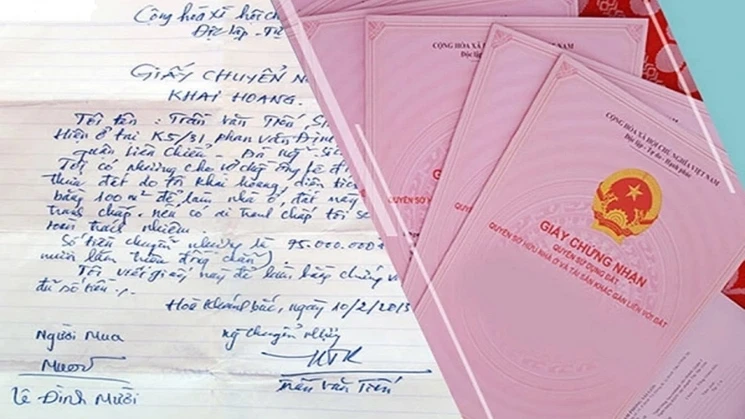 Cộng hòa xã hội ch
Độc lập - Tự
GIẤY CHUYỂN N
KHAI HOANG.
Tôi tên : Trần Văn Tiến S
Hiện ở tại K5/31, phan Văn Định
quận Liên Chiểu - Đà Nẵng
Tôi có nhượng cho vợ chồng ông
thửa đất do tôi khai hoang, diện tí
bằng 100 m² để làm nhà ở, đất này
tranh chấp, nếu có ai tranh chấp tôi sẽ
toàn trách nhiệm.
Số tiền chuyển nhượng là 75.000.000
mươi lăm triệu đồng chẵn)
Tôi viết giấy này để làm bằng chứng và
đủ số tiền
Hòa Khánh bắc, ngày 10/2/2015
Người Mua
ký chuyển nhượng
Mười
Lê Đình Mười
Trần Văn Tiến
CỘNG HÒA XÃ HỘI CHỦ NGHĨA VIỆT NAM
Độc lập - Tự do - Hạnh phúc
GIẤY CHỨNG NHẬN
QUYỀN SỬ DỤNG ĐẤT
QUYỀN SỞ HỮU NHÀ Ở VÀ TÀI SẢN KHÁC GẮN LIỀN VỚI ĐẤT
CỘNG HÒA XÃ HỘI
VIỆT NAM
Độc lập